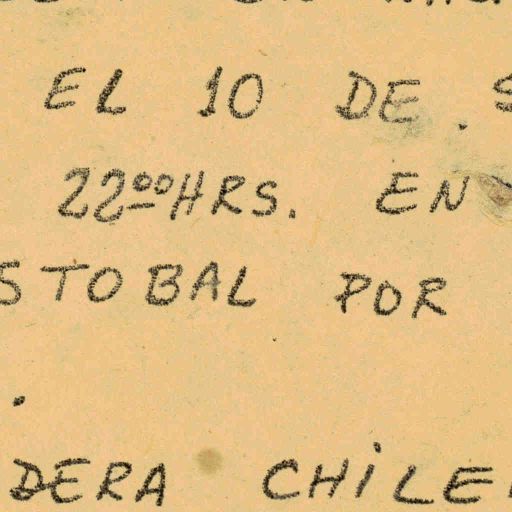 EL 10 DE . S
22ººHRS. EN
STOBAL POR
.
DERA CHILE